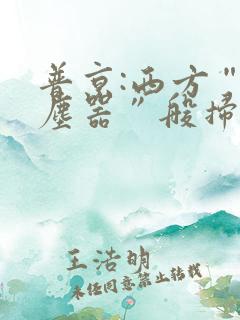 普京:西方"
塵器"般掃
王浩明
未经同意禁止转载